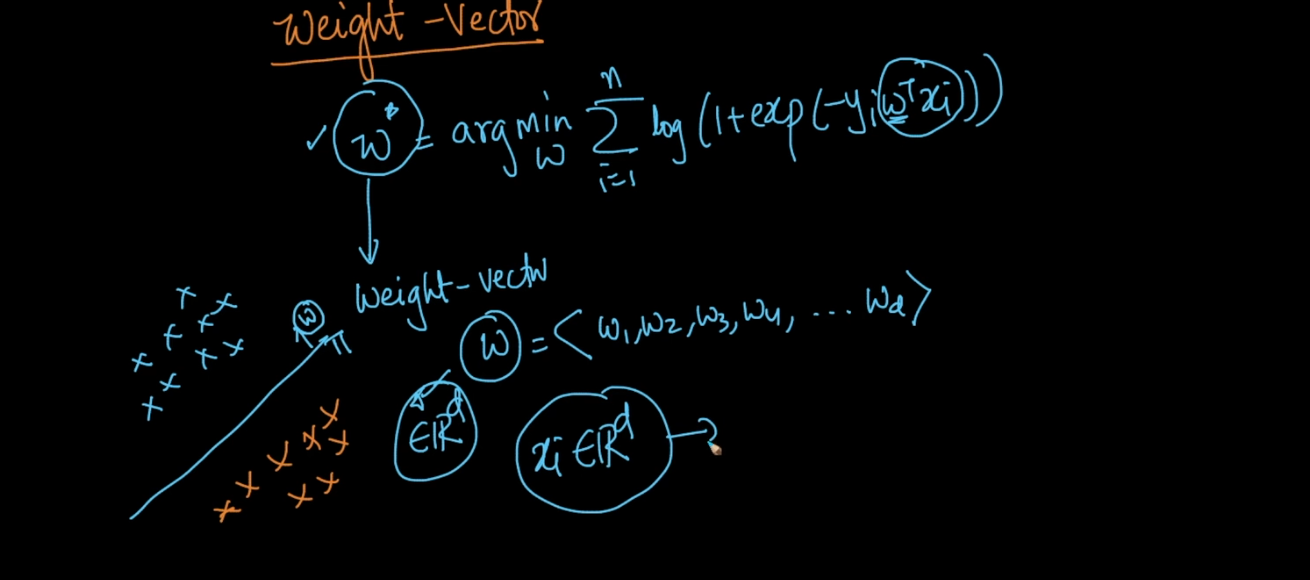 Weight - Vector
w* = argmin_w Σ_{i=1}^{n} log(1+exp(-y_i w^T x_i)))
Weight - vector
w
π
w = < w₁, w₂, w₃, w₄, ... w_d >
∈ℝ^d
x_i ∈ℝ^d →